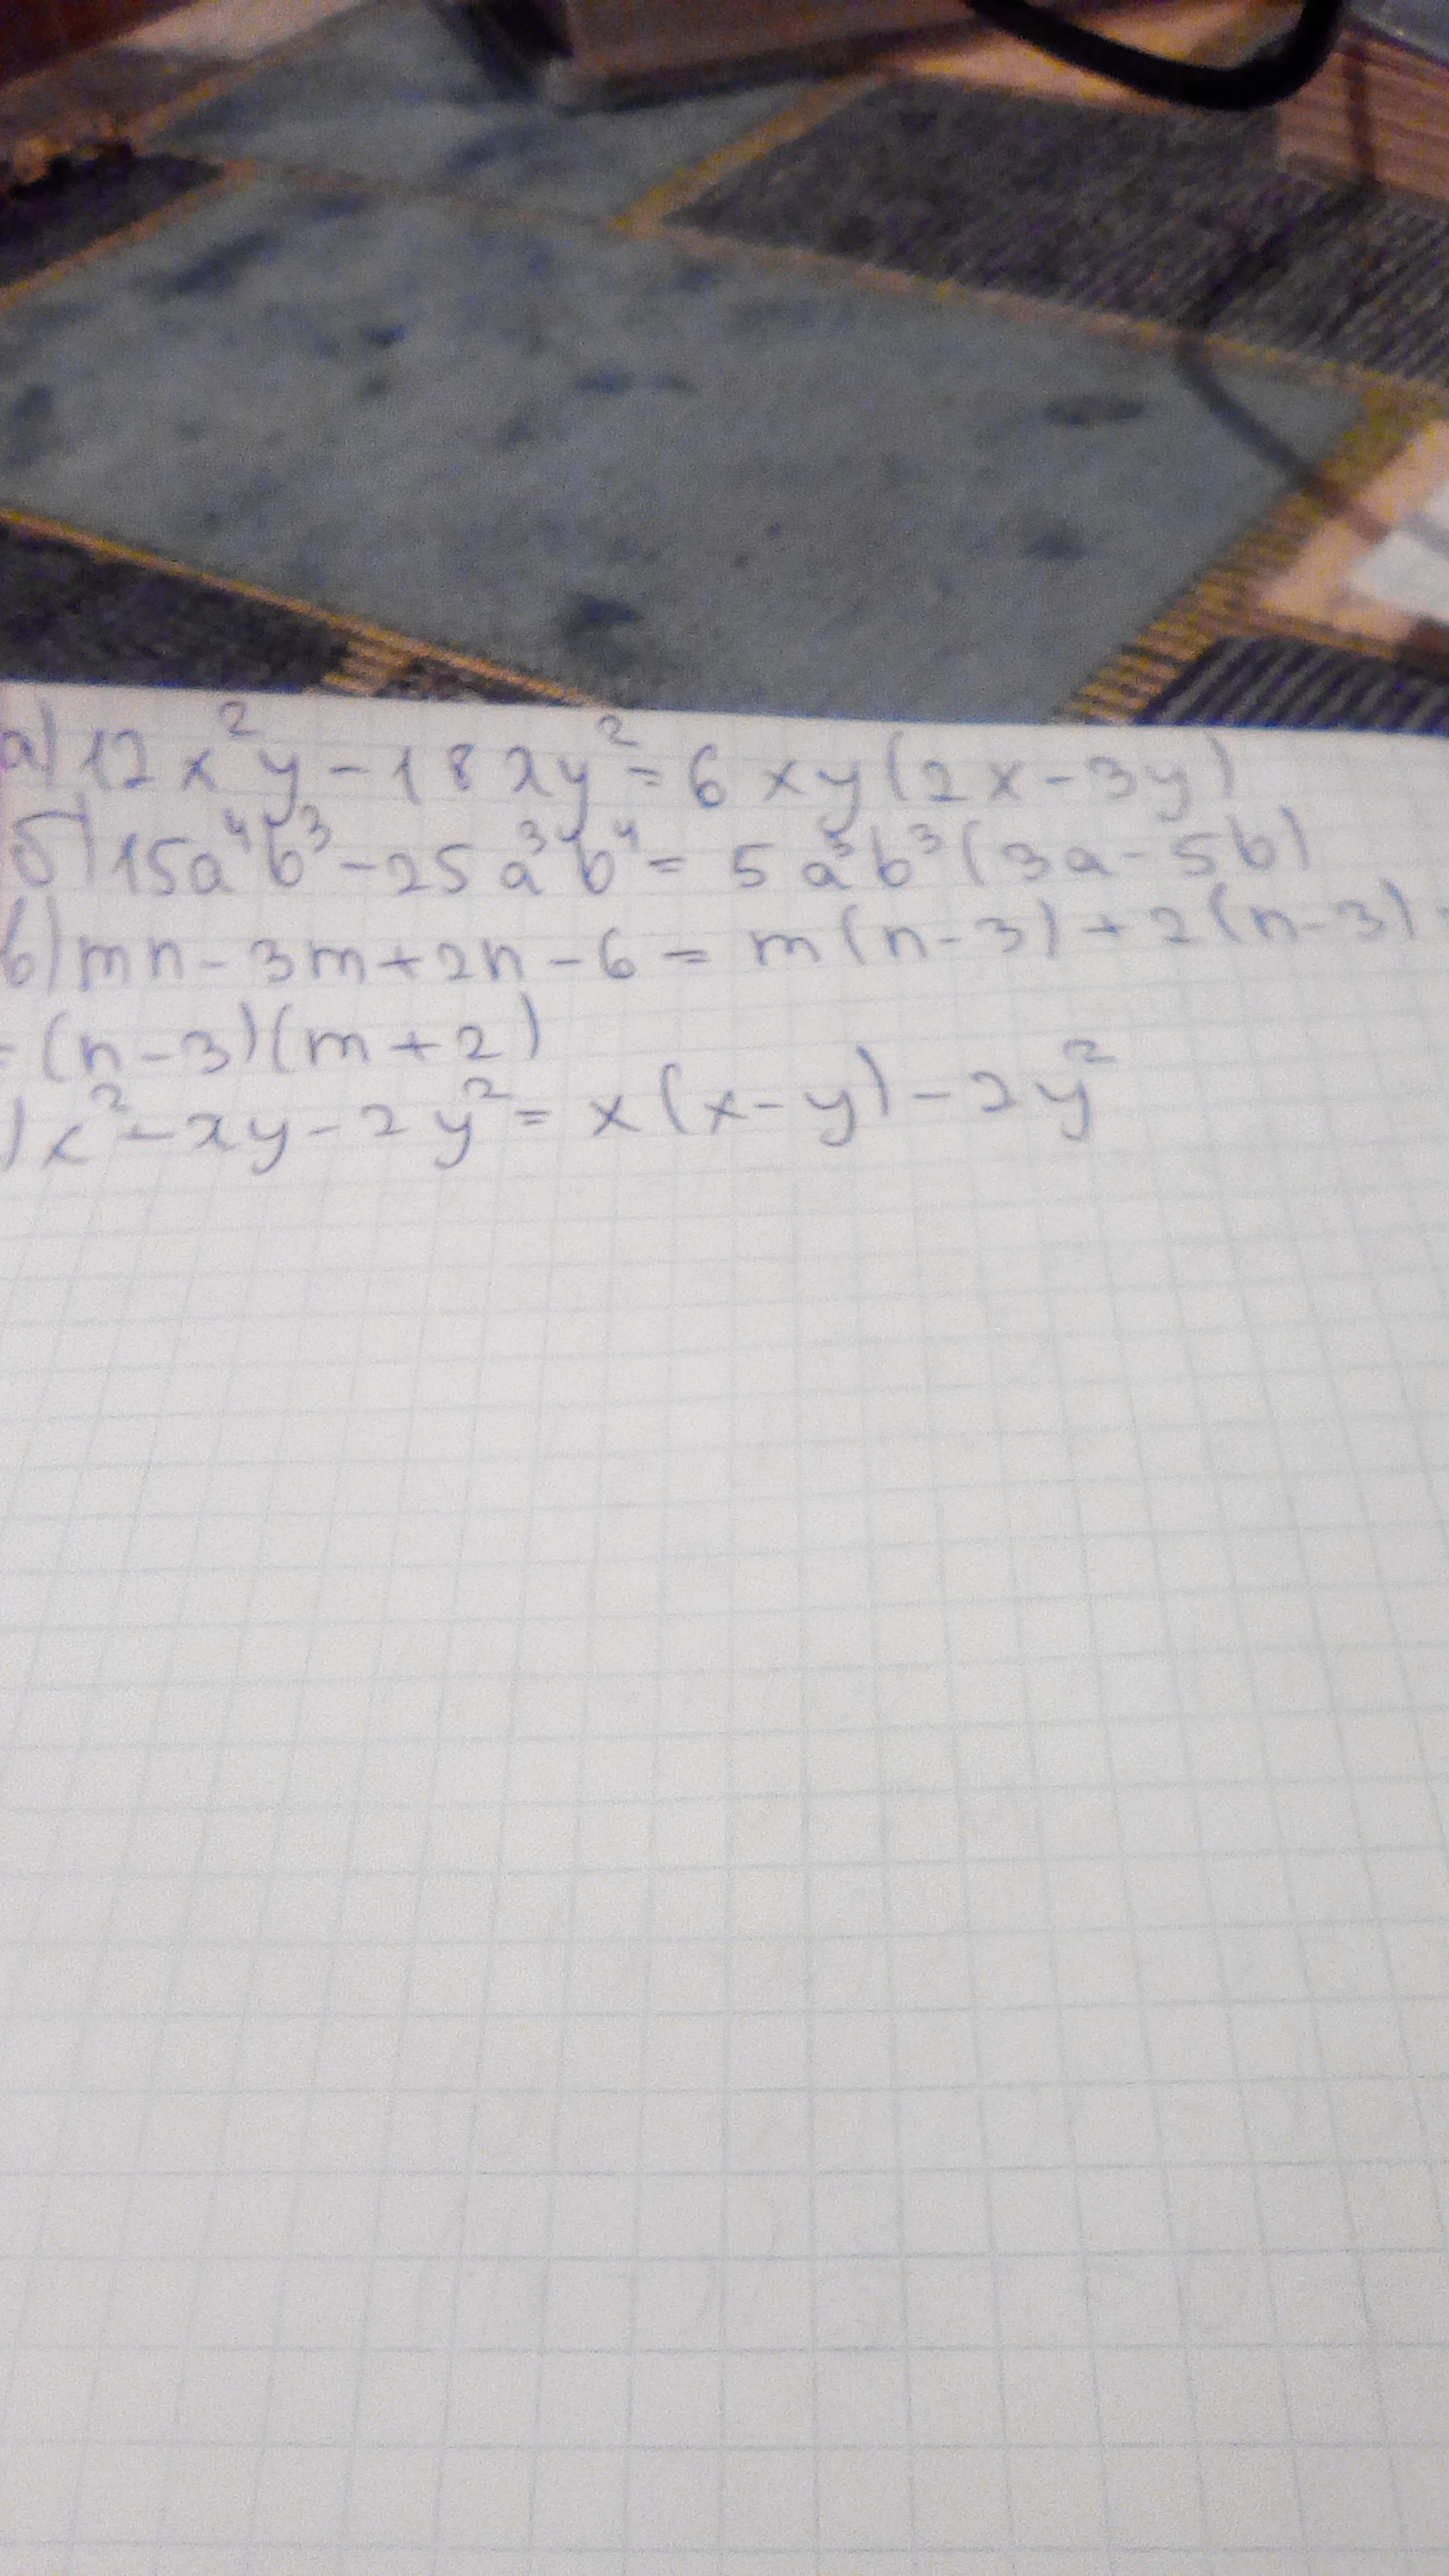 а) 12x²y - 18xy² = 6xy(2x - 3y)
б) 15a⁴b³ - 25a³b⁴ = 5a³b³(3a - 5b)
в) mn - 3m + 2n - 6 = m(n - 3) + 2(n - 3) =
= (n - 3)(m + 2)
) x² - xy - 2y² = x(x - y) - 2y²